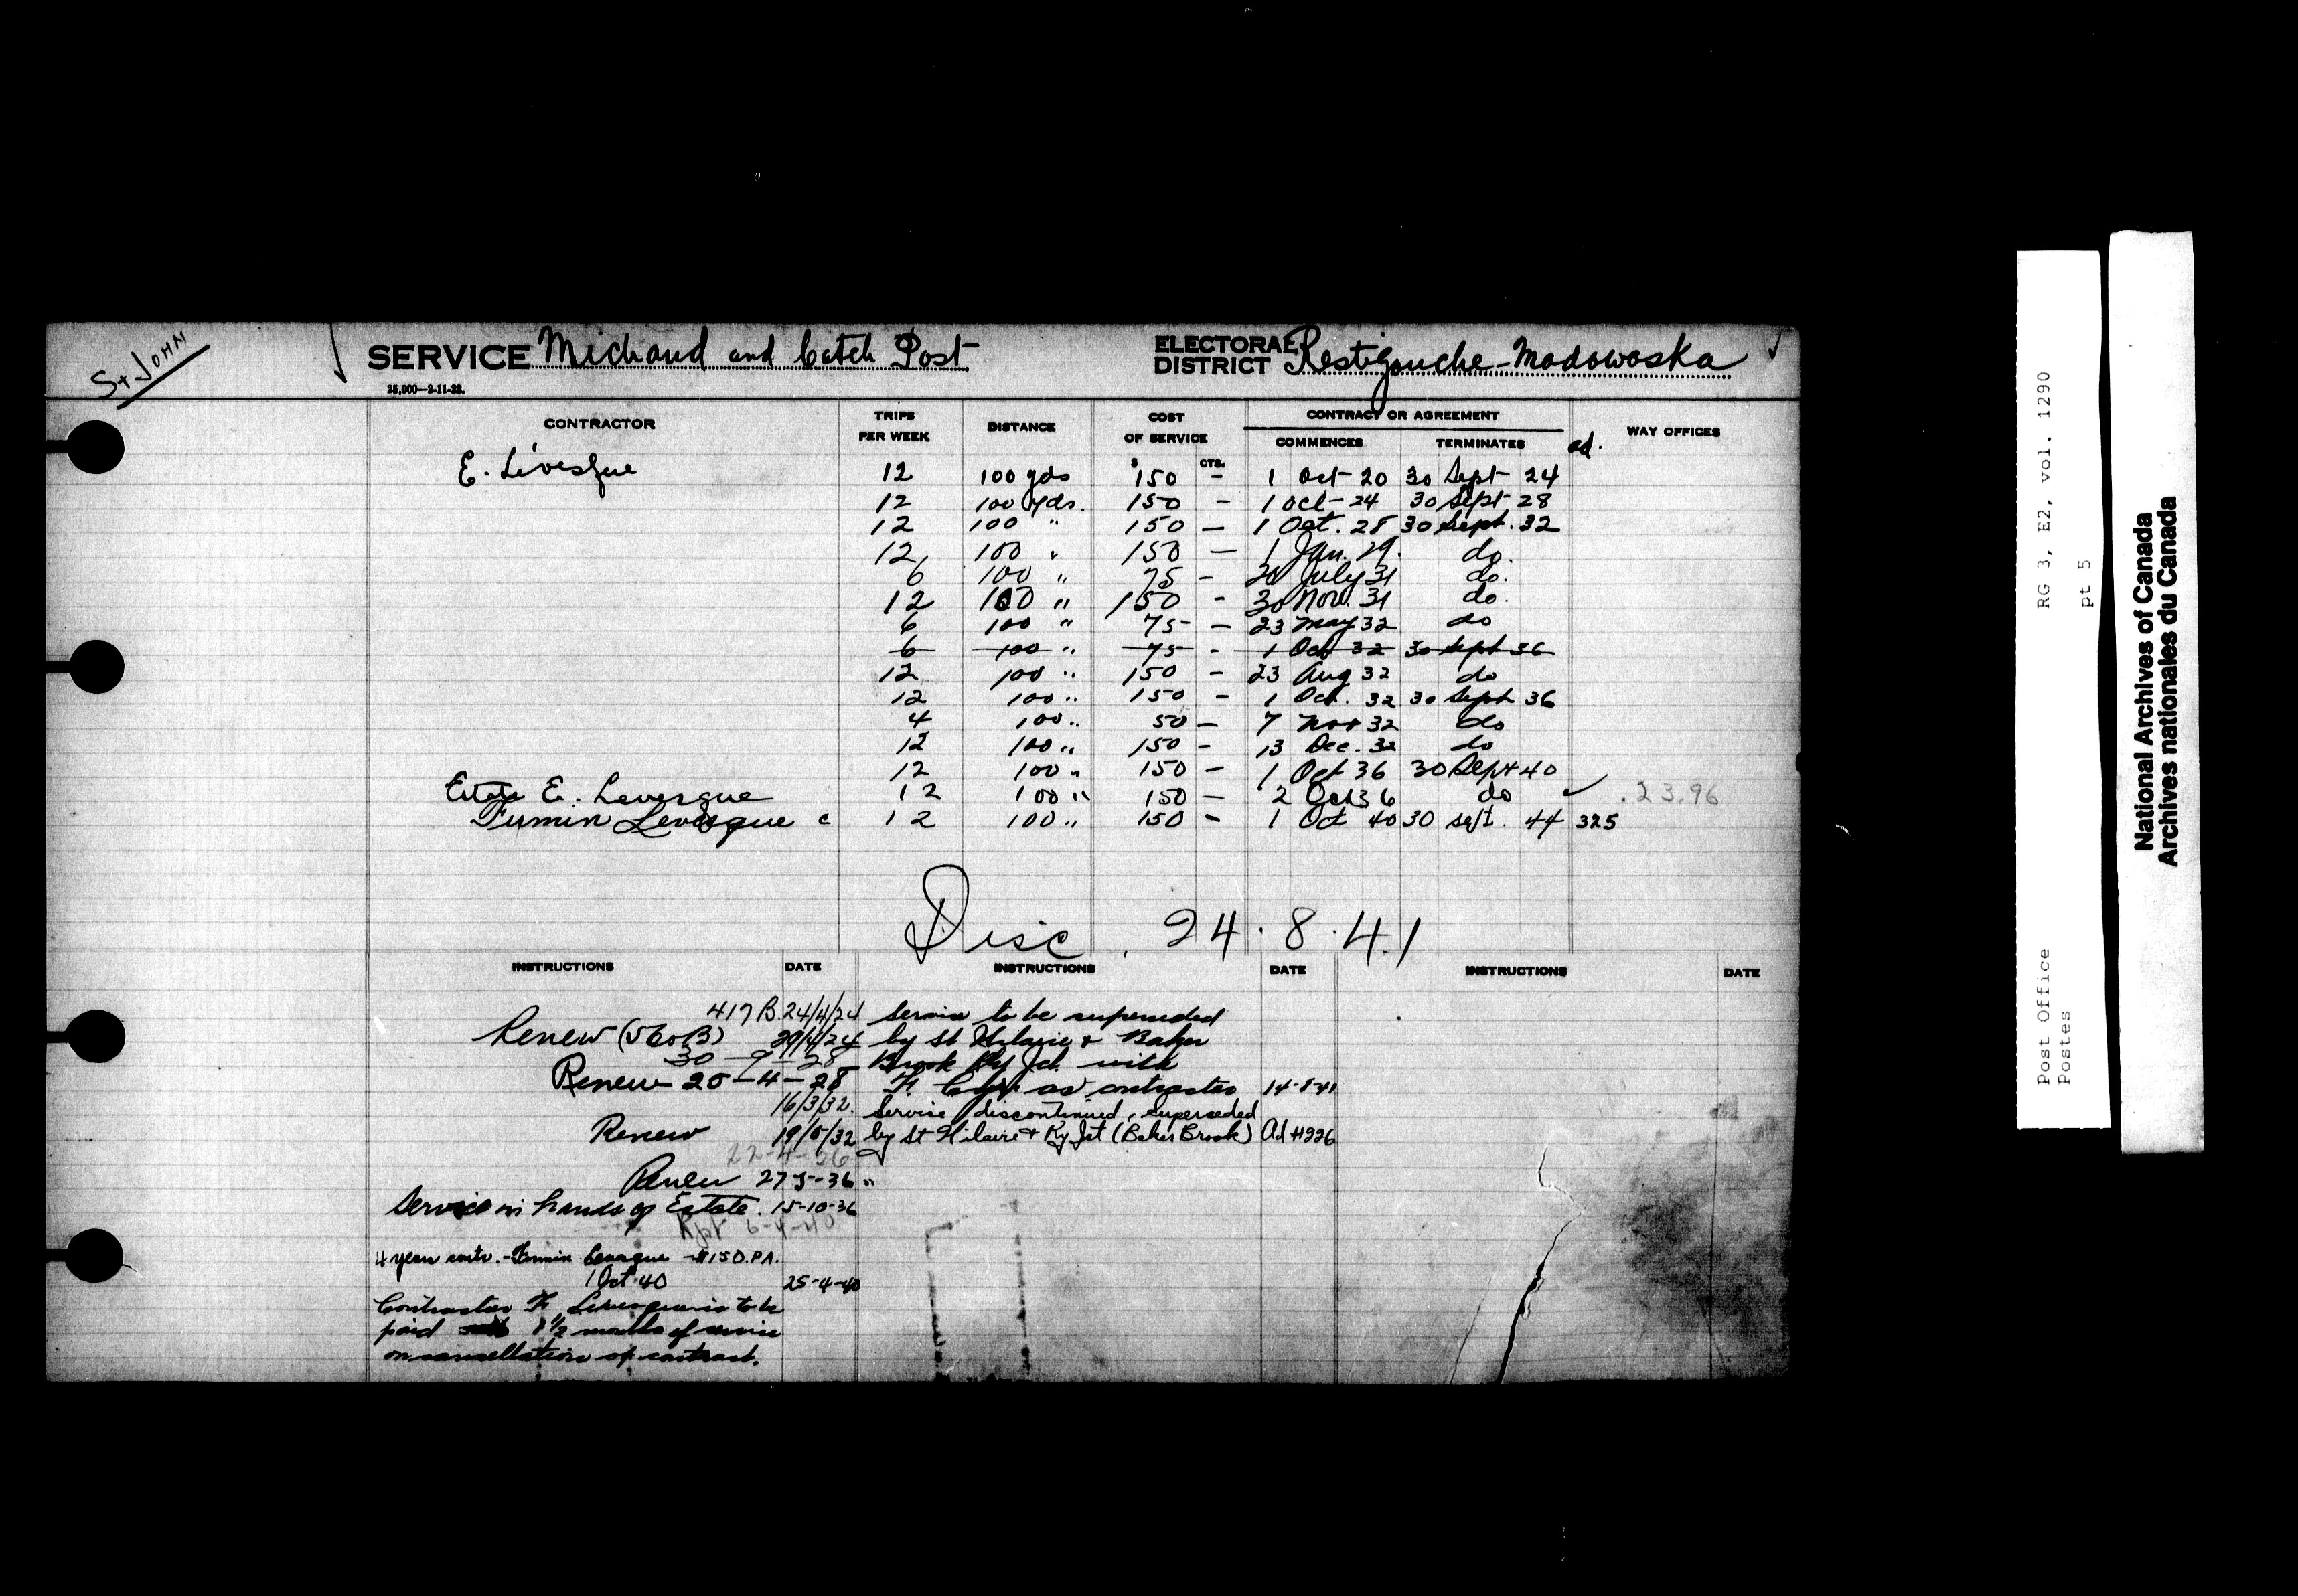 St JOHN
SERVICE Michaud and Catch Post ELECTORAL DISTRICT Restigouche-Madawaska
25,000—2-11-22.
CONTRACTOR TRIPS PER WEEK DISTANCE COST OF SERVICE CONTRACT OR AGREEMENT COMMENCES TERMINATES ad. WAY OFFICES
$ CTS.
E. Lévesque 12 100 yds 150 - 1 Oct 20 30 Sept 24
12 100 yds. 150 - 1 Oct- 24 30 Sept 28
12 100 " 150 - 1 Oct. 28 30 Sept. 32
12 100 " 150 - 1 Jan. 29. do.
6 100 " 75 - 20 July 31 do.
12 100 " 150 - 30 Nov. 31 do.
6 100 " 75 - 23 May 32 do
6 100 " 75 - 1 Oct 32 30 Sept 36
12 100 " 150 - 23 Aug 32 do
12 100 " 150 - 1 Oct. 32 30 Sept 36
4 100 " 50 - 7 Nov 32 do
12 100 " 150 - 13 Dec. 32 do
12 100 " 150 - 1 Oct 36 30 Sept 40
Estate E. Levesque 12 100 " 150 - 2 Oct 36 do ✓ .23.96
Firmin Levesque c 12 100 " 150 - 1 Oct 40 30 sept. 44 325
Disc. 24.8.41
INSTRUCTIONS DATE INSTRUCTIONS DATE INSTRUCTIONS DATE
417 B. 24/4/24
Renew (560B) 29/4/24
30-9-28
Renew 25-4-28
16/3/32.
Renew 19/5/32
22-4-36
Renew 27-5-36
Service in hands of Estate. 15-10-36
Rpt 6-4-40
4 year contr. - Firmin Levesque - $150. P.A.
1 Oct 40 25-4-40
Contractor F. Levesque is to be
paid 1 1/2 months of service
on cancellation of contract.
Service to be superseded
by St Hilaire & Baker
Brook Ry Jct. with
F. Cyr as contractor 14-8-41
Service discontinued, superseded
by St Hilaire & Ry Jct (Baker Brook) Ad #226
"
Post Office RG 3, E2, vol. 1290
Postes pt 5
National Archives of Canada
Archives nationales du Canada